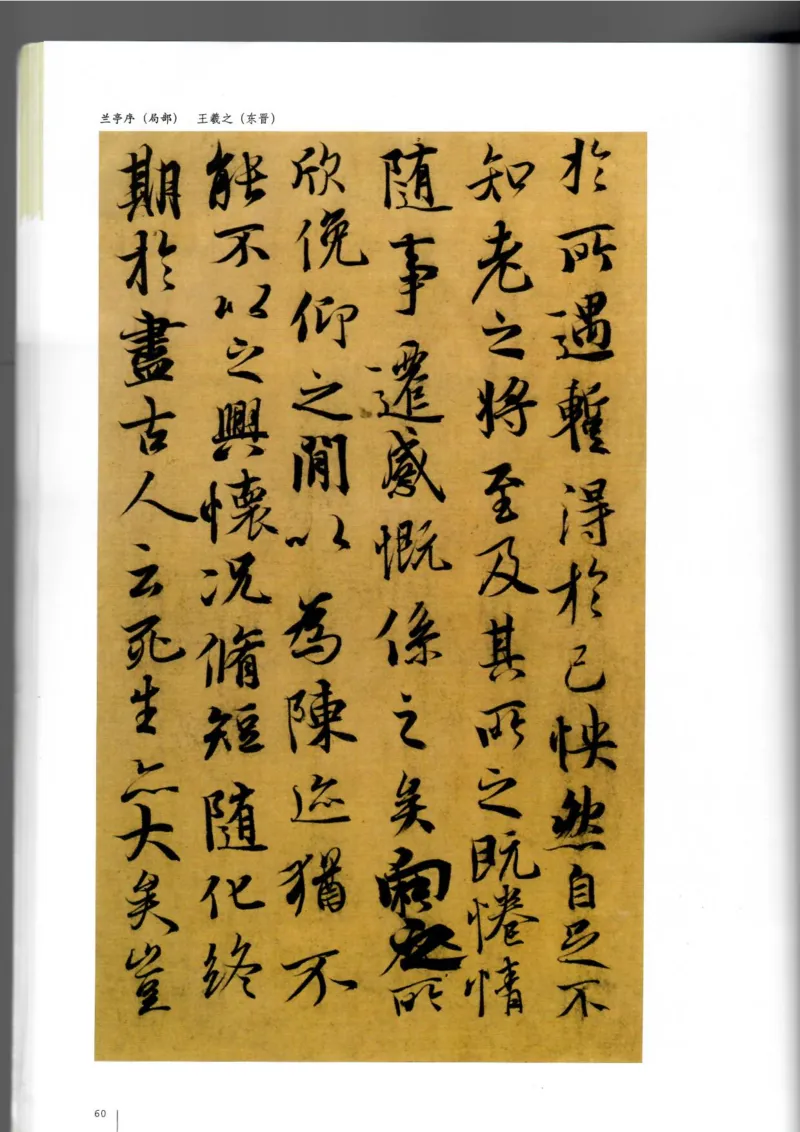 兰亭序（局部） 王羲之（东晋）
於所遇暫得於己怏然自足不
知老之將至及其所之既惓情
随事遷感慨係之矣向之所
欣俛仰之閒以為陳迹猶不
能不以之興懷况脩短随化終
期於盡古人云死生亦大矣豈
60